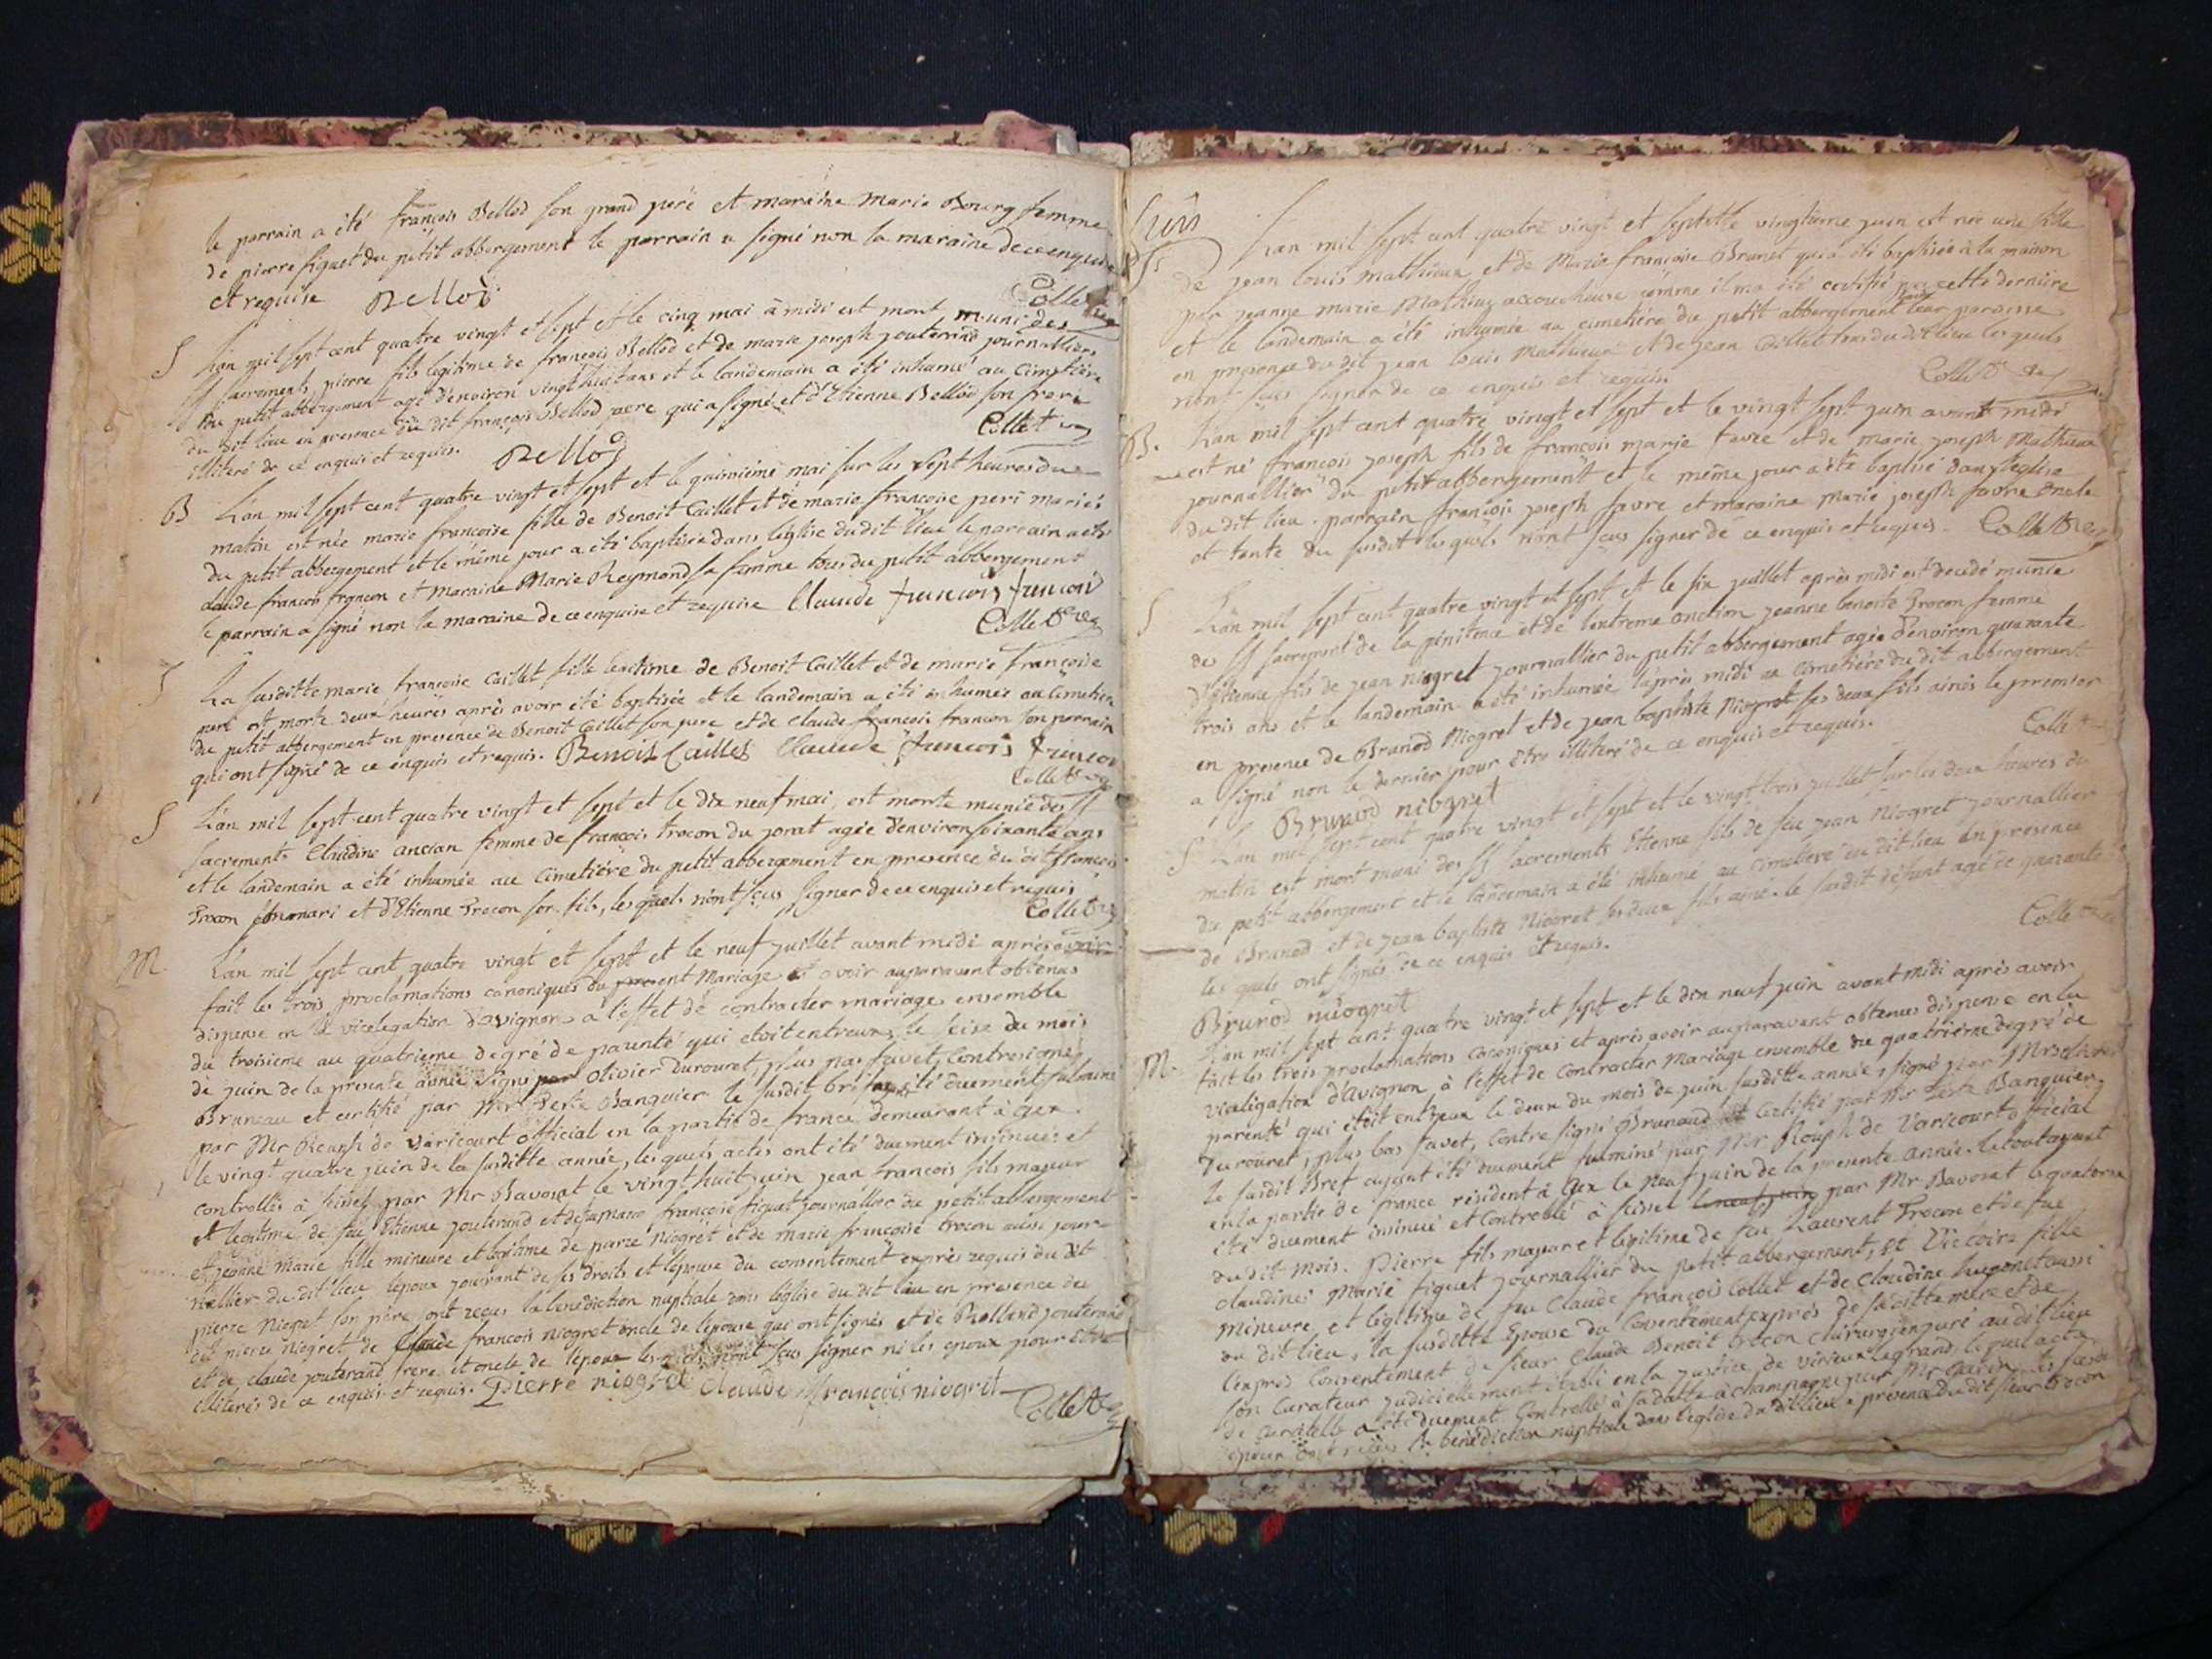 le parrain a été françois Bellod son grand père et maraine marie Bourg femme
de pierre figuet du petit abbergement le parrain a signé non la maraine de ce enquise
et requise Bellod Collet
S L'an mil sept cent quatre vingt et sept et le cinq mai à midi est mort muni des
SS sacrements, pierre fils legitime de françois Bellod et de marie joseph jouterand journalliers
du petit abbergement agé d'environ vingt huit ans et le landemain a été inhumé au Cimetière
du dit lieu en presence du dit françois Bellod pere qui a signé et d'Etienne Bellod son frere
illiteré de ce enquis et requis. Bellod Collet
B L'an mil sept cent quatre vingt et sept et le quinsième mai sur les sept heures du
matin est née marie françoise fille de Benoit Caillet et de marie françoise peri mariés
du petit abbergement et le même jour a été baptisée dans l'église du dit lieu le parrain a été
claude françois françon et maraine Marie Reymond sa femme tous du petit abbergement
le parrain a signé non la maraine de ce enquise et requise Claude françois françon
Collet
S La susditte marie françoise Caillet fille legitime de Benoit Caillet et de marie françoise
peri est morte deux heures après avoir été baptisée et le landemain a été inhumée au Cimetière
du petit abbergement en presence de Benoit Caillet son pere et de claude françois françon son parrain
qui ont signé de ce enquis et requis. Benoit Caillet Claude françois françon
Collet
S L'an mil sept cent quatre vingt et sept et le dix neuf mai, est morte munie des SS
sacrements Claudine ancian femme de françois trocon du jorat agée d'environ soixante ans
et le landemain a été inhumée au Cimetière du petit abbergement en presence du dit françois
Trocon son mari et d'Etienne Trocon son fils, les quels n'ont sçus signer de ce enquis et requis
Collet
M. L'an mil sept cent quatre vingt et sept et le neuf juillet avant midi après avoir
fait les trois proclamations canoniques du present Mariage et avoir auparavant obtenus
dispense en la vicelegation d'avignon a l'effet de contracter mariage ensemble
du troisieme au quatrieme degré de parenté qui etoit entreux, le seise du mois
de juin de la presente année signé par olivier Durouret, plus pas favet, Contresigné
Bruneau et certifié par Mr Teste Banquier le susdit bref ayant été duement fulminé
par Mr Rouph de Varicourt official en la partie de france demeurant à Gex
le vingt quatre juin de la susditte année, les quels actes ont été duement insinués et
controllés à seissel par Mr Bavosat le vingt huit juin jean françois fils majeur
et legitime de feu Etienne jouterand et defunte françoise figuet journallier du petit abbergement
et jeanne marie fille mineure et legitime de pierre Niogret et de marie françoise trocon aussi jour-
nallier du dit lieu l'epoux jouissant de ses droits et l'épouse du consentement exprès requis du dit
pierre Niogret son père ont reçus la benediction nuptiale dans l'église du dit lieu en presence du
dit pierre Niogret de Claude françois niogret oncle de l'epouse qui ont signés et de Rolland jouterand
et de claude jouterand frere et oncle de l'epoux les quels n'ont sçus signer ni les epoux pour être
illiterés de ce enquis et requis. Pierre niogret Claude françois niogret
Collet
Juin
S L'an mil sept cent quatre vingt et sept et le vingtième juin est née une fille
de jean louis mathieux et de Marie françoise Brunet qui a été baptisée à la maison
par jeanne marie Mathieux accoucheuse comme il m'a été certifié par cette dernière
et le landemain a été inhumée au cimetière du petit abbergement leur paroisse
en presence du dit jean louis Mathieux et de jean Caillet tous du dit lieu les quels
n'ont sçus signer de ce enquis et requis Collet
B. L'an mil sept cent quatre vingt et sept et le vingt sept juin avant midi
est né françois joseph fils de françois marie favre et de marie joseph Mathieux
journallier du petit abbergement et le même jour a été baptisé dans l'église
du dit lieu. parrain françois joseph favre et maraine Marie joseph favre oncle
et tante du susdit les quels n'ont sçus signer de ce enquis et requis. Collet
S L'an mil sept cent quatre vingt et sept et le six juillet après midi est decedé munie
des SS sacrement de la pénitence et de l'extreme onction jeanne benoite Trocon femme
d'Etienne fils de jean niogret journallier du petit abbergement agée d'environ quarante
trois ans et le landemain a été inhumée l'après midi au cimetière du dit abbergement
en presence de Brunod Niogret et de jean baptiste Niogret ses deux fils ainés le premier
a signé non le dernier pour être illiteré de ce enquis et requis. Collet
Brunod niogret
S L'an mil sept cent quatre vingt et sept et le vingt trois juillet sur les deux heures du
matin est mort muni des SS sacrements Etienne fils de feu jean Niogret journallier
du petit abbergement et le landemain a été inhumé au cimetière du dit lieu en presence
de Brunod et de jean baptiste Niogret ses deux fils ainé. le susdit défunt agé de quarante
les quels ont signés de ce enquis et requis. Collet
Brunod niogret
M. L'an mil sept cent quatre vingt et sept et le dix neuf juin avant midi après avoir
fait les trois proclamations canoniques et après avoir auparavant obtenus dispense en la
vicelegation d'Avignon à l'effet de contracter Mariage ensemble du quatrième degré de
parenté qui étoit entreux le deux du mois de juin susditte année, signé par Mr olivier
Durouret, plus bas favet, Contre signé Brunaud et certifié par Mr Teste Banquier
le susdit Bref ayant été duement fulminé par Mr Rouph de Varicourt official
en la partie de france résident à Gex le neuf juin de la presente année. le tout ayant
été duement insinué et controllé à seissel par Mr Bavosat le quatorse
du dit mois. Pierre fils majeur et légitime de feu Laurent Trocon et de feu
claudine Marie figuet journallier du petit abbergement, et Victoire fille
mineure et légitime de feu Claude françois Collet et de Claudine hugonet aussi
du dit lieu, la susditte Epouse du Consentement exprès de sa ditte mere et de
l'exprès Consentement de sieur Claude Benoit trocon chirurgien juré au dit lieu
son Curateur judiciellement établi en la justice de virieux le grand, le quel acte
de curatelle a été duement Controllé à sa datte à champagne par Mr les susdit
epoux ont reçus la bénédiction nuptiale dans l'église du dit lieu en presence du dit sieur trocon